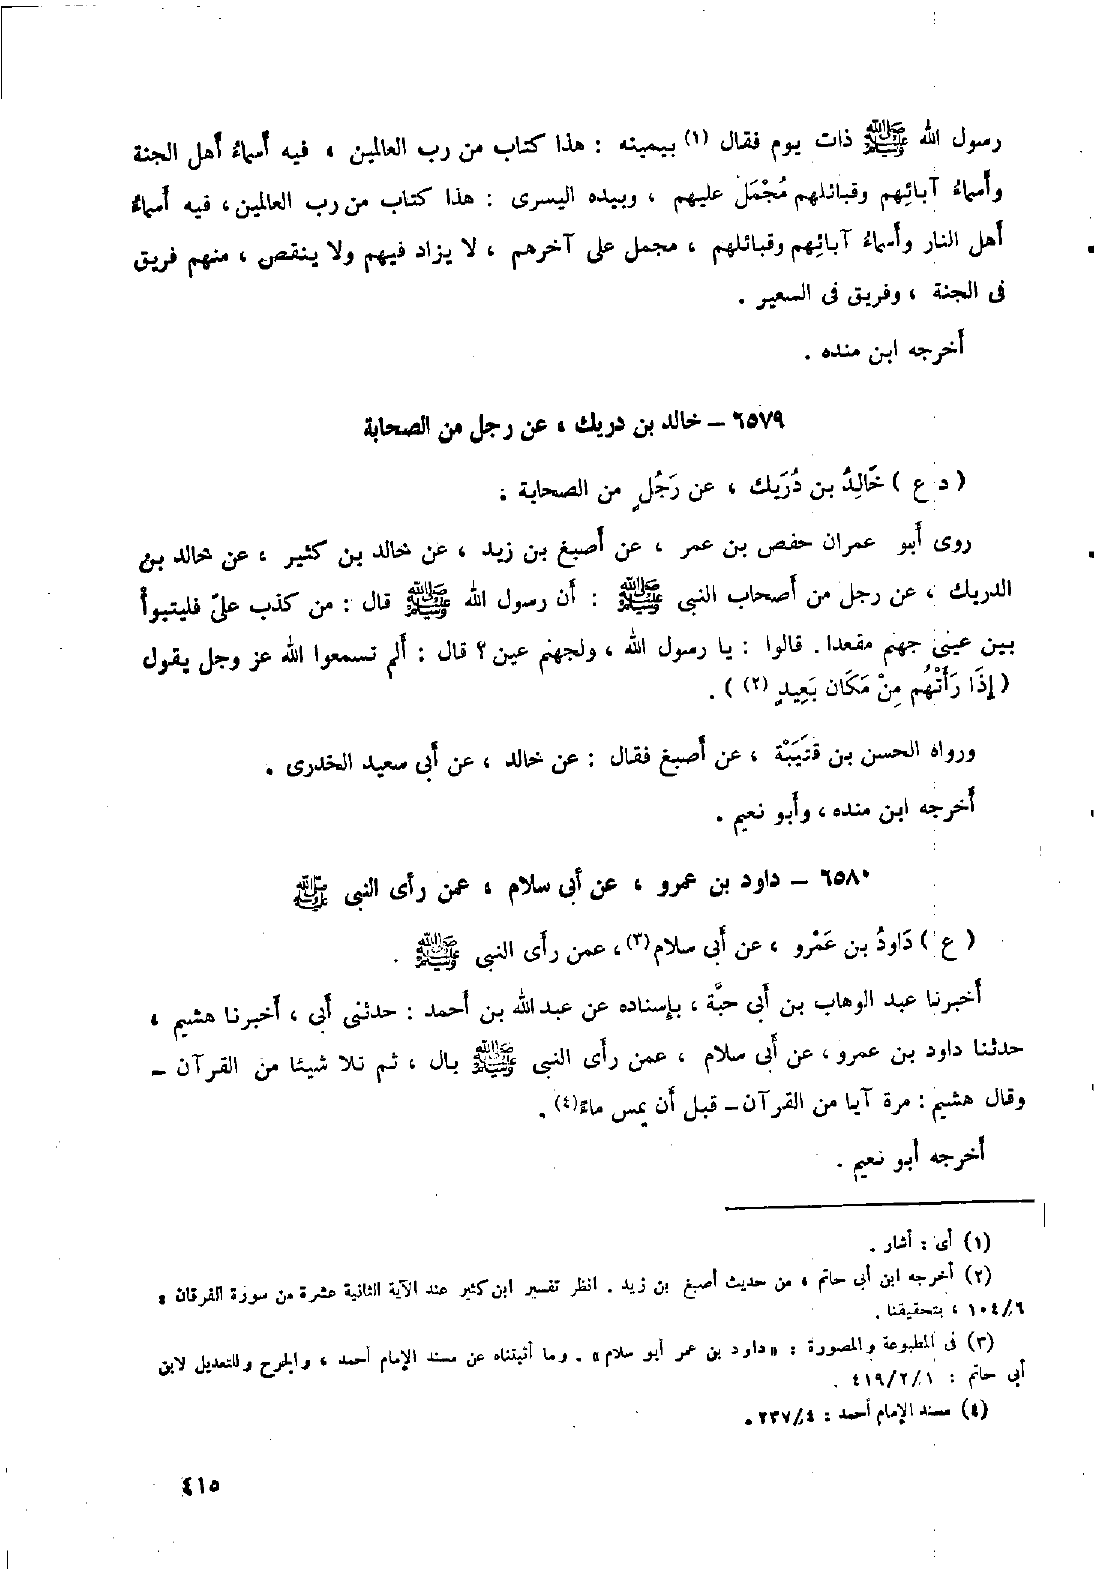 رسول الله ﷺ ذات يوم فقال (١) بيمينه : هذا كتاب من رب العالمين ، فيه أسماءُ أهل الجنة
وأسماءُ آبائِهم وقبائلهم مُجْمَلٌ عليهم ، وبيده اليسرى : هذا كتاب من رب العالمين ، فيه أسماءُ
أهل النار وأسماءُ آبائِهم وقبائلهم ، مجمل على آخرهم ، لا يزاد فيهم ولا ينقص ، منهم فريق
فى الجنة ، وفريق فى السعير .
أخرجه ابن منده .
٦٥٧٩ – خالد بن دريك ، عن رجل من الصحابة
( د ع ) خَالِدُ بن دُرَيك ، عن رَجُلٍ من الصحابة :
روى أبو عمران حفص بن عمر ، عن أصبغ بن زيد ، عن خالد بن كثير ، عن خالد بن
الدريك ، عن رجل من أصحاب النبى ﷺ : أن رسول الله ﷺ قال : من كذب علىّ فليتبوأ
بين عينى جهنم مقعدا . قالوا : يا رسول الله ، ولجهنم عين ؟ قال : ألم تسمعوا الله عز وجل يقول
( إِذَا رَأَتْهُم مِنْ مَكَان بَعِيدٍ (٢) ) .
ورواه الحسن بن قتَيَبْة ، عن أصبغ فقال : عن خالد ، عن أبى سعيد الخدرى .
أخرجه ابن منده ، وأبو نعيم .
٦٥٨٠ – داود بن عمرو ، عن أبى سلام ، عمن رأى النبى ﷺ
( ع ) دَاودُ بن عَمْرو ، عن أبى سلام (٣) ، عمن رأى النبى ﷺ .
أخبرنا عبد الوهاب بن أبى حبَّة ، بإسناده عن عبد الله بن أحمد : حدثنى أبى ، أخبرنا هشيم ،
حدثنا داود بن عمرو ، عن أبى سلام ، عمن رأى النبى ﷺ بال ، ثم تلا شيئا من القرآن –
وقال هشيم : مرة آيا من القرآن – قبل أن يمس ماءً (٤) .
أخرجه أبو نعيم .
(١) أى : أشار .
(٢) أخرجه ابن أبى حاتم ، من حديث أصبغ بن زيد . انظر تفسير ابن كثير عند الآية الثانية عشرة من سورة الفرقان :
٦/١٠٤ ، بتحقيقنا .
(٣) فى المطبوعة والمصورة : «داود بن عمر أبو سلام» . وما أثبتناه عن مسند الإمام أحمد ، والجرح والتعديل لابن
أبى حاتم : ١/٢/٤١٩ .
(٤) مسند الإمام أحمد : ٤/٢٣٧ .
٤١٥